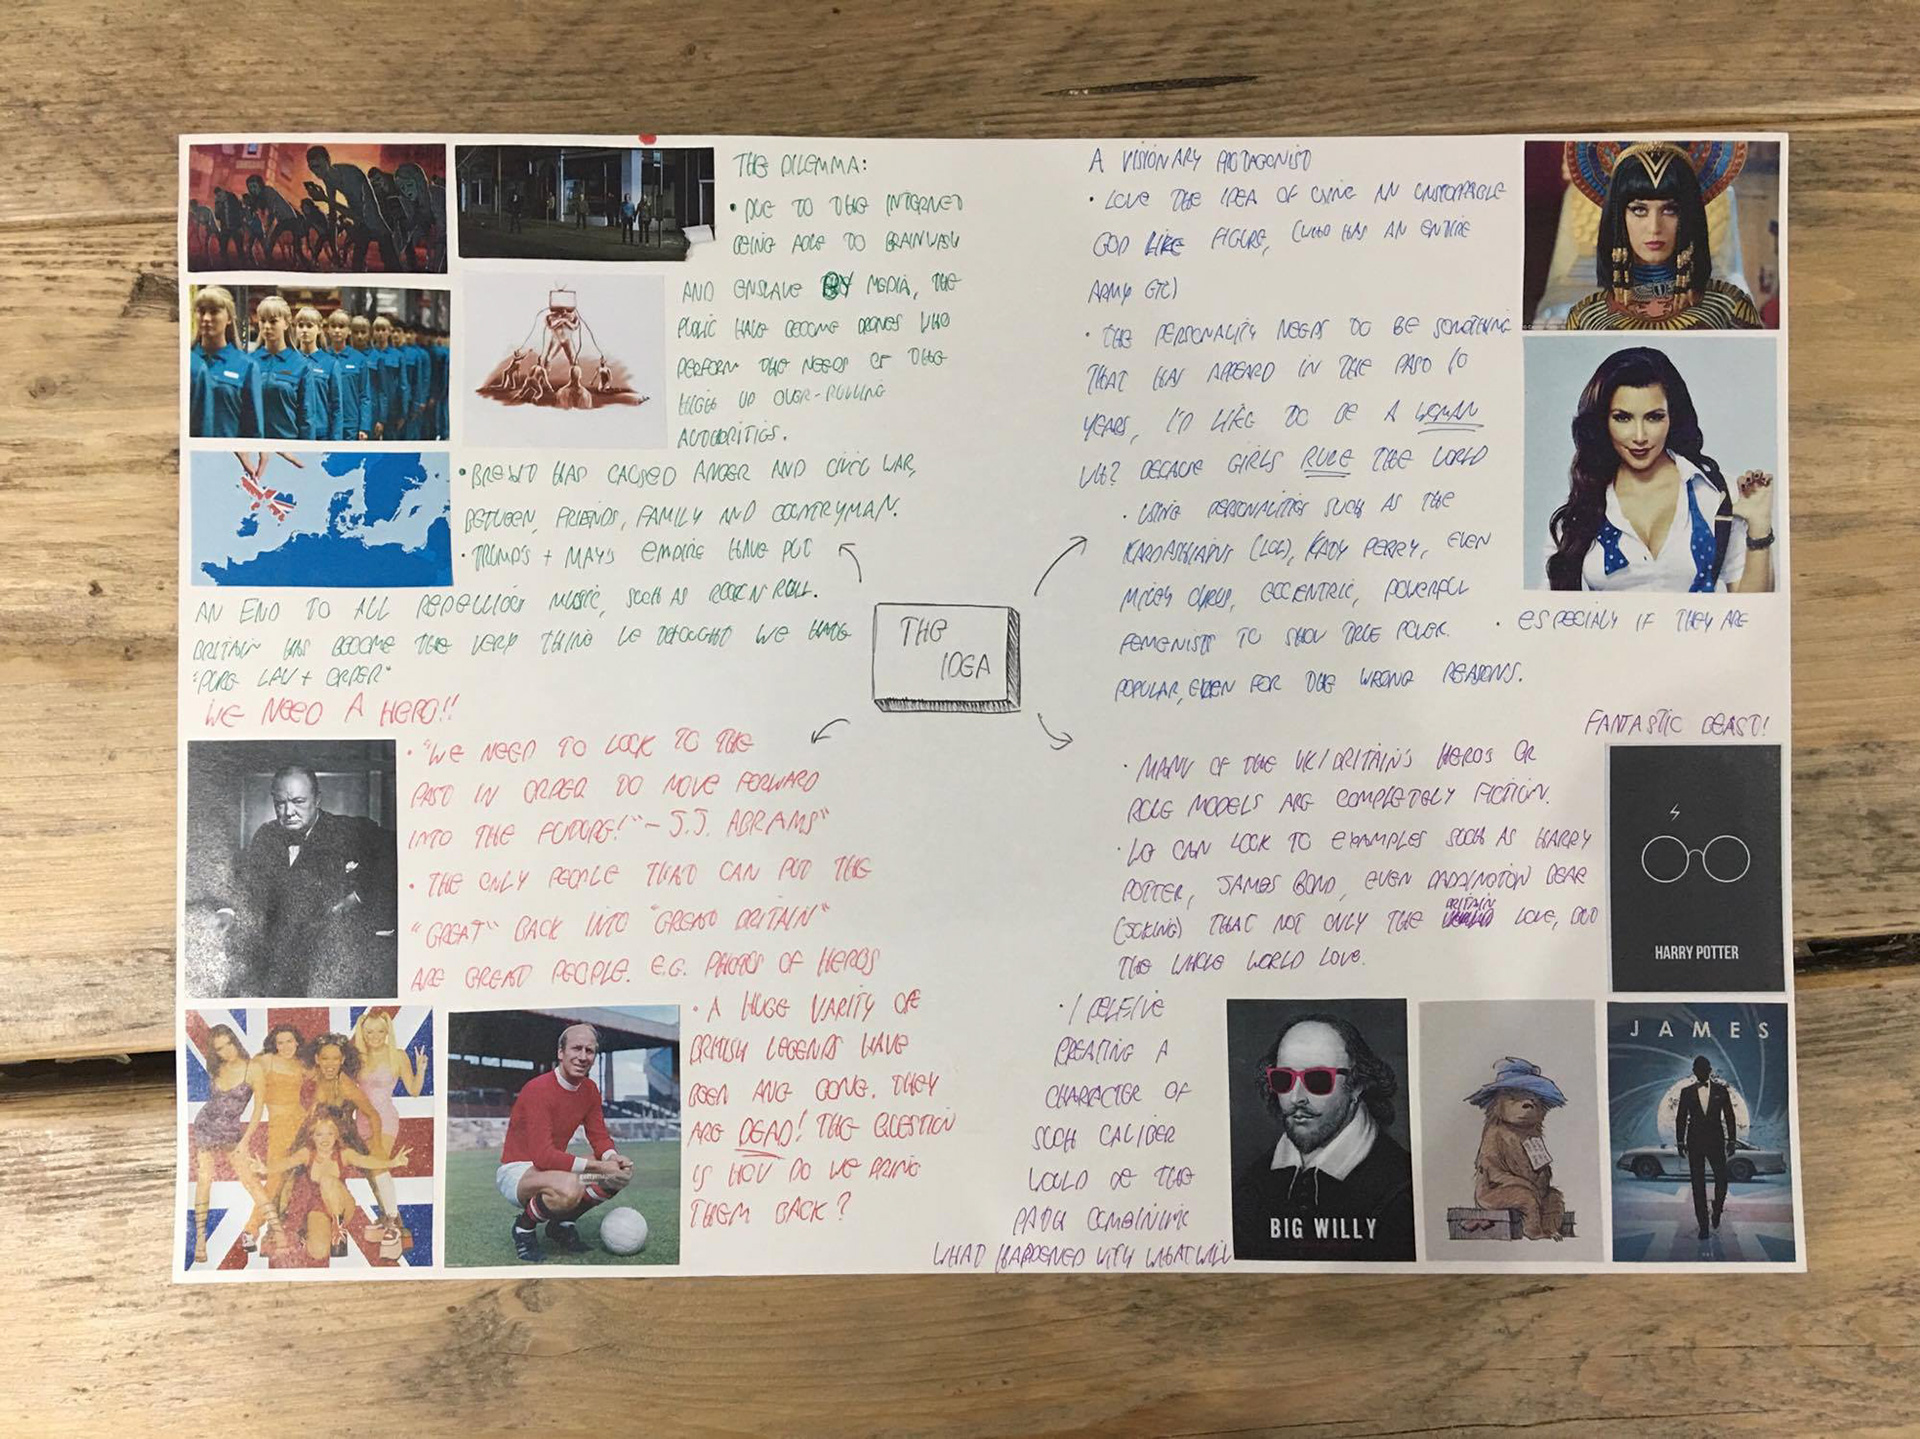 THE DILEMMA:
• DUE TO THE INTERNET
BEING ABLE TO BRAINWASH
AND ENSLAVE BY MEDIA, THE
PUBLIC HAVE BECOME DRONES WHO
PERFORM THE NEEDS OF THE
HIGER UP OVER-RULLING
AUTHORITIES.
• BREXIT HAS CAUSED ANGER AND CIVIL WAR,
BETWEEN, FRIENDS, FAMILY AND COUNTRYMAN.
• TRUMP'S + MAY'S EMPIRE HAVE PUT
AN END TO ALL REBELLIOUS MUSIC, SUCH AS ROCK N' ROLL.
BRITAIN HAS BECOME THE VERY THING WE THOUGHT WE HATE
"PURE LAW + ORDER"
WE NEED A HERO!!
• "WE NEED TO LOOK TO THE
PAST IN ORDER TO MOVE FORWARD
INTO THE FUTURE!" - J.J. ABRAMS"
• THE ONLY PEOPLE THAT CAN PUT THE
"GREAT" BACK INTO "GREAT BRITAIN"
ARE GREAT PEOPLE. E.G. PHOTOS OF HEROS
• A HUGE VARITY OF
BRITISH LEGENDS HAVE
BEEN AND GONE. THEY
ARE DEAD! THE QUESTION
IS HOW DO WE BRING
THEM BACK?
THE
IDEA
A VISIONARY PROTAGONIST
• LOVE THE IDEA OF USING AN UNSTOPPABLE
GOD LIKE FIGURE, (WHO HAS AN ENTIRE
ARMY ETC)
• THE PERSONALITY NEEDS TO BE SOMETHING
THAT HAS APPEARD IN THE PAST 10
YEARS, I'D LIKE TO BE A WOMAN
WH? BECAUSE GIRLS RULE THE WORLD
• USING PERSONALITIES SUCH AS THE
KARDASHIANS (LOL), KATY PERRY, EVEN
MILEY CYRUS, ECCENTRIC, POWERFUL
FEMENISTS TO SHOW TRUE POWER. • ESPECIALY IF THEY ARE
POPULAR, EVEN FOR THE WRONG REASONS.
FANTASTIC BEAST!
• MANY OF THE UK/BRITAIN'S HEROS OR
ROLE MODELS ARE COMPLETELY FICTION.
• WE CAN LOOK TO EXAMPLES SUCH AS HARRY
POTTER, JAMES BOND, EVEN PADDINGTON BEAR
(JOKING) THAT NOT ONLY THE BRITAIN LOVE, BUT
THE WHOLE WORLD LOVE.
• I BELEIVE
CREATING A
CHARACTER OF
SUCH CALIBER
WOULD BE THE
PATH COMBINING
WHAT HAPPENED WITH WHAT WILL
HARRY POTTER
BIG WILLY
JAMES